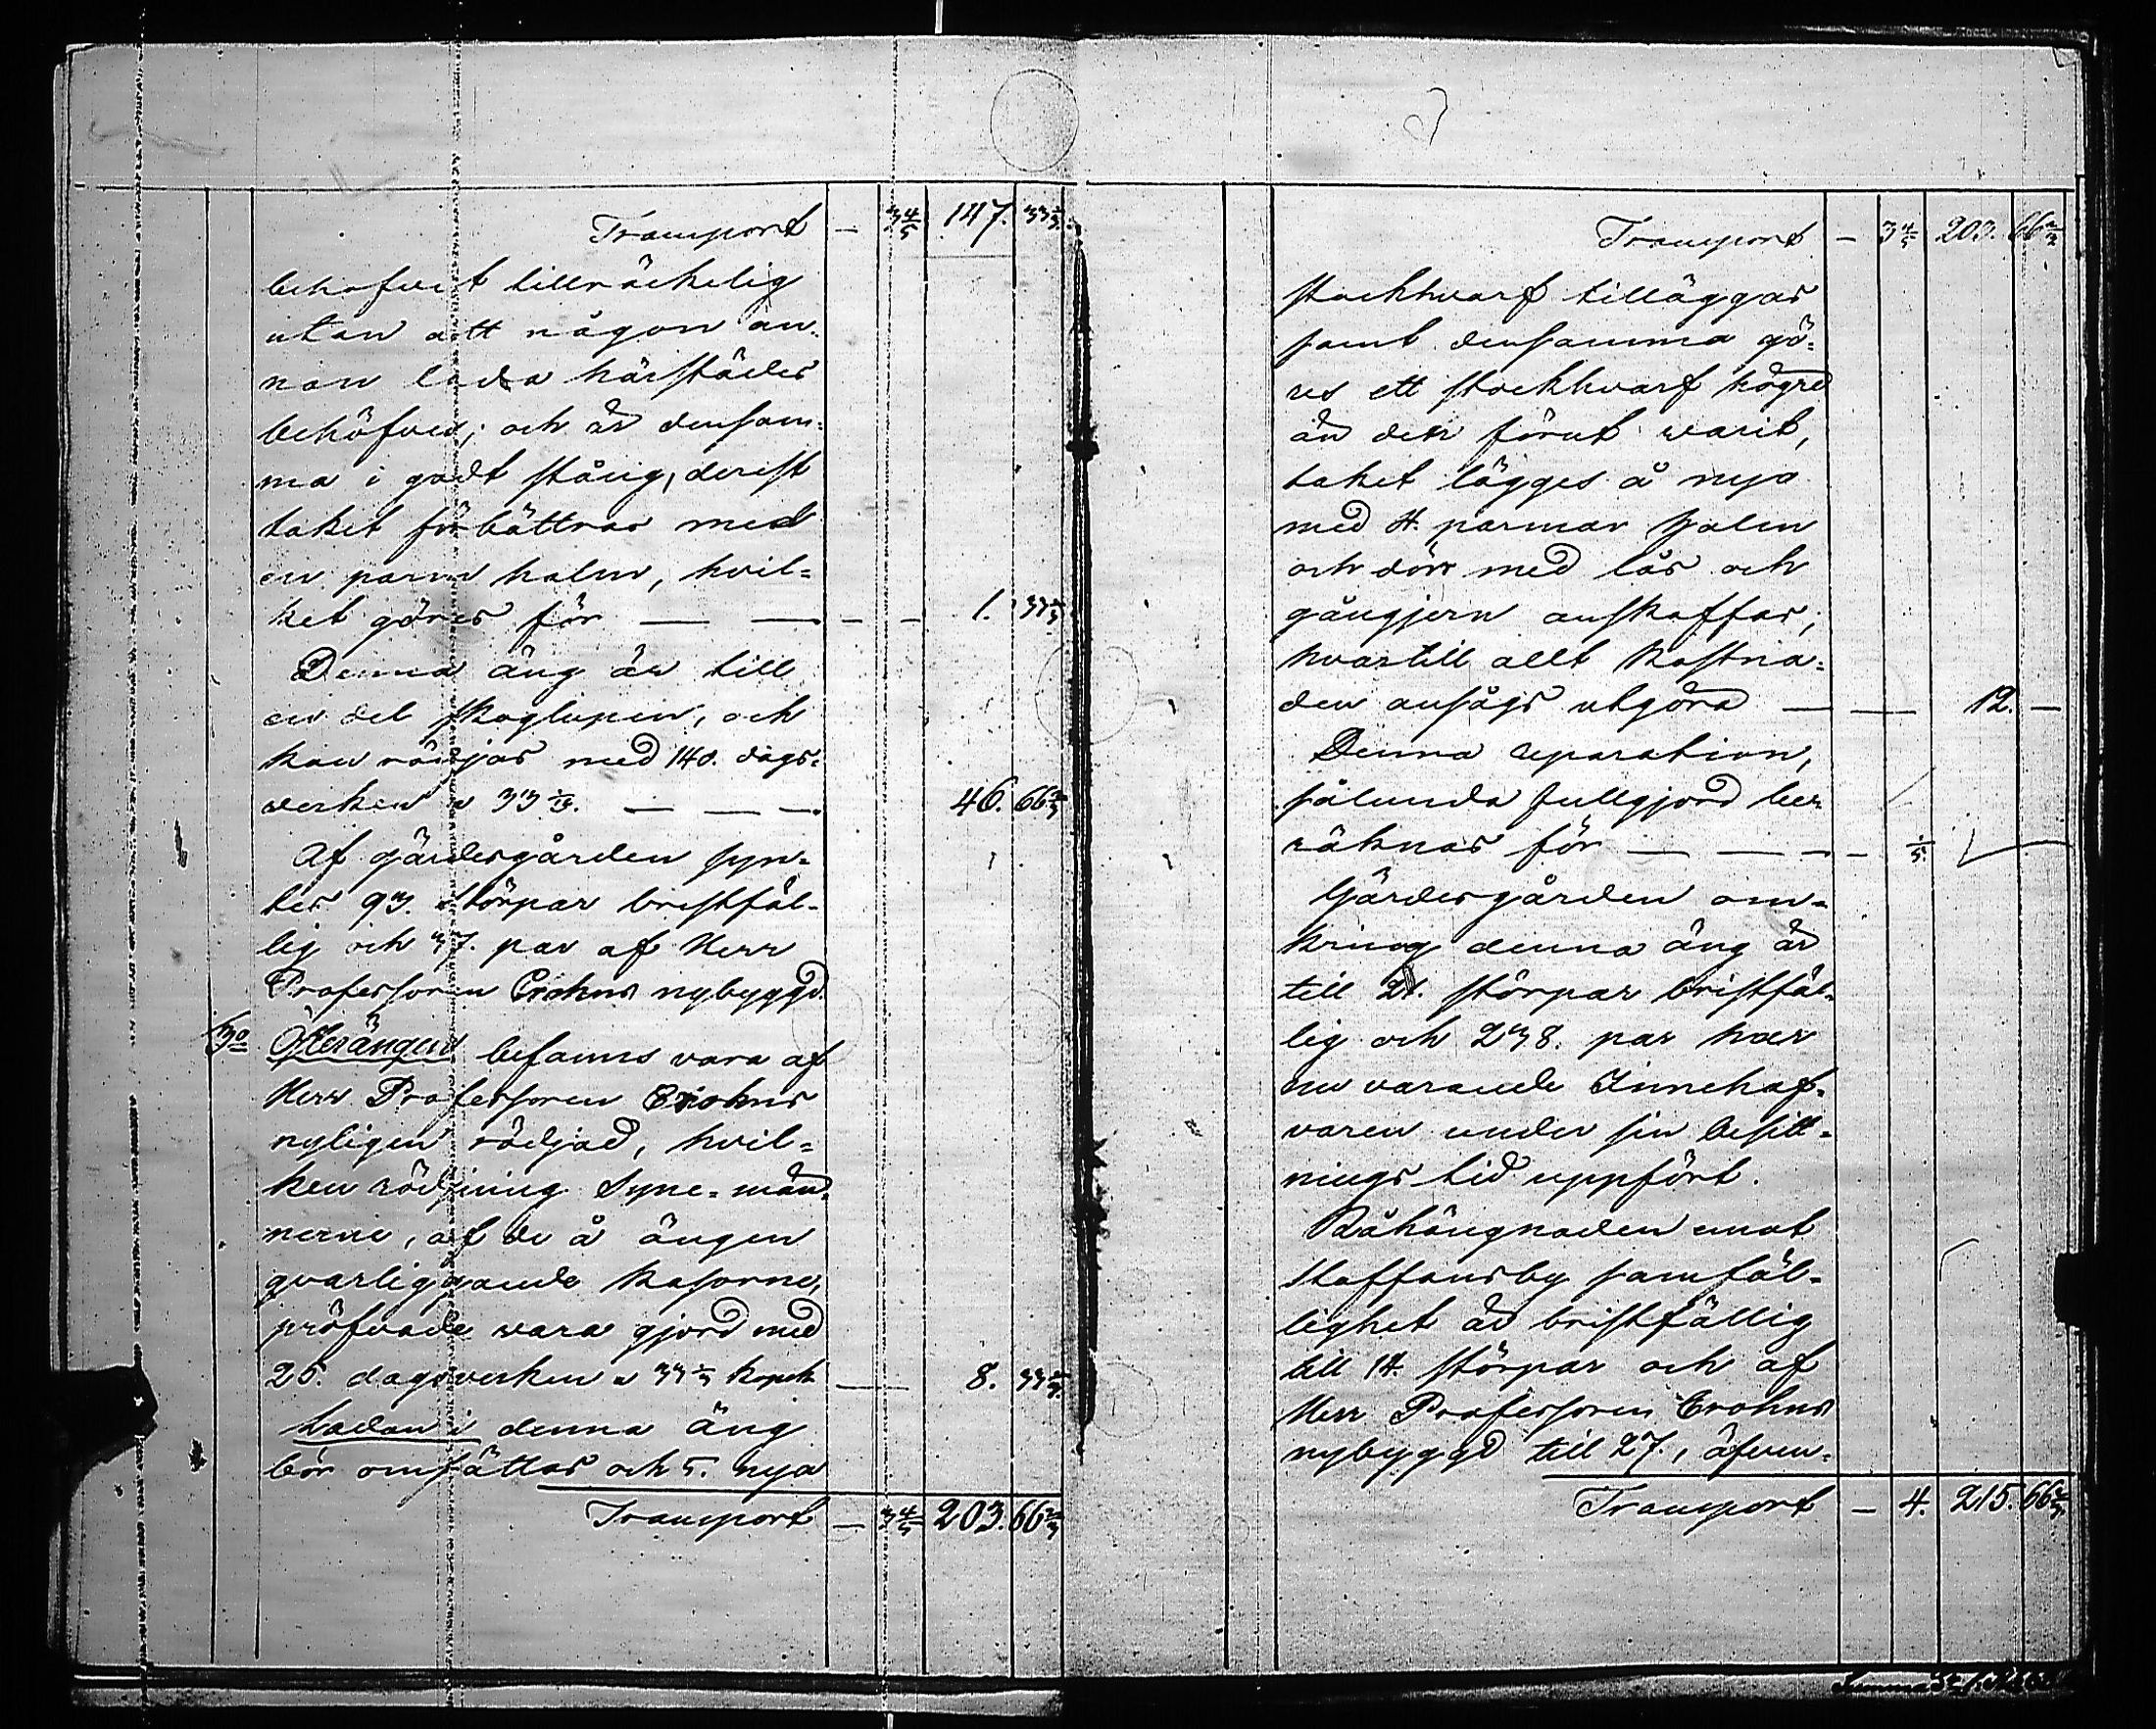 Transport — 3 4/5 147. 33 1/3.
behofvet tillräckelig
utan att någon an-
nan lada härstädes
behöfves; och är densam-
ma i godt stånd, derest
taket förbättras med
en parm halm, hvil=
ket göres för — — — — 1. 33 1/3
Denna äng är till
en del skoglupen, och
kan rödjas med 140. dags-
verken a 33 1/3. — — — 46. 66 2/3
Af gärdesgården syn-
tes 93. störpar bristfäl-
lig och 37. par af Herr
Professoren Crohns nybyggd.
3o Österängen befanns vara af
Herr Professoren Crohns
nyligen rödjad, hvil=
ken rödjning Syne-män-
nerne, af de å ängen
qvarliggande kasorne,
pröfvade vara gjord med
25. dagsverken a 33 1/3 kopek — — 8. 33 1/3
Ladan i denna äng
bör omsättas och 5. nya
Transport — 3 4/5 203. 66 2/3
Transport — 3 4/5 203. 66 2/3
stockhvarf tilläggas
samt densamma gö-
res ett stockhvarf högre
än den förut varit,
taket lägges å nyo
med 4. parmar halm
och dörr med lås och
gångjern anskaffas;
hvartill allt kostna=
den ansågs utgöra — — 12. —
Denna reparation,
sålunda fullgjord be-
räknas för — — — — 1/5.
Gärdesgården om-
kring denna äng är
till 21. störpar bristfäl-
lig och 238. par har
nu varande Innehaf-
varen under sin besitt-
nings tid uppfört.
Råhängnaden emot
Staffansby samfäl-
lighet är bristfällig
till 14. störpar och af
Herr Professoren Crohns
nybyggd till 27., äfven-
Transport — 4. 215. 66 2/3